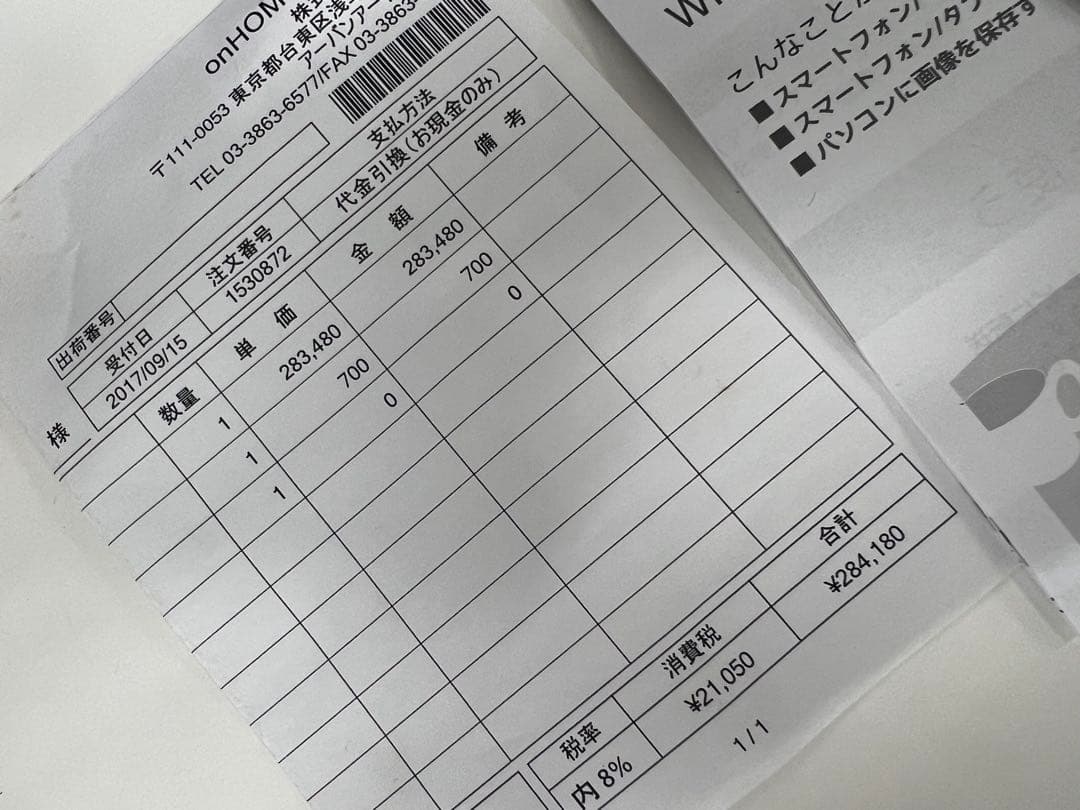 onHOM
株式
〒111-0053 東京都台東区浅
アーバンアー
TEL 03-3863-6577/FAX 03-3863-
出荷番号
受付日
注文番号
支払方法
2017/09/15
1530872
代金引換(お現金のみ)
様
数量
単 価
金 額
備 考
1
283,480
283,480
1
700
700
1
0
0
税率
消費税
合計
内 8%
¥21,050
¥284,180
1 / 1
こんなこと
■スマートフォン/
■スマートフォン/タブ
■パソコンに画像を保存す